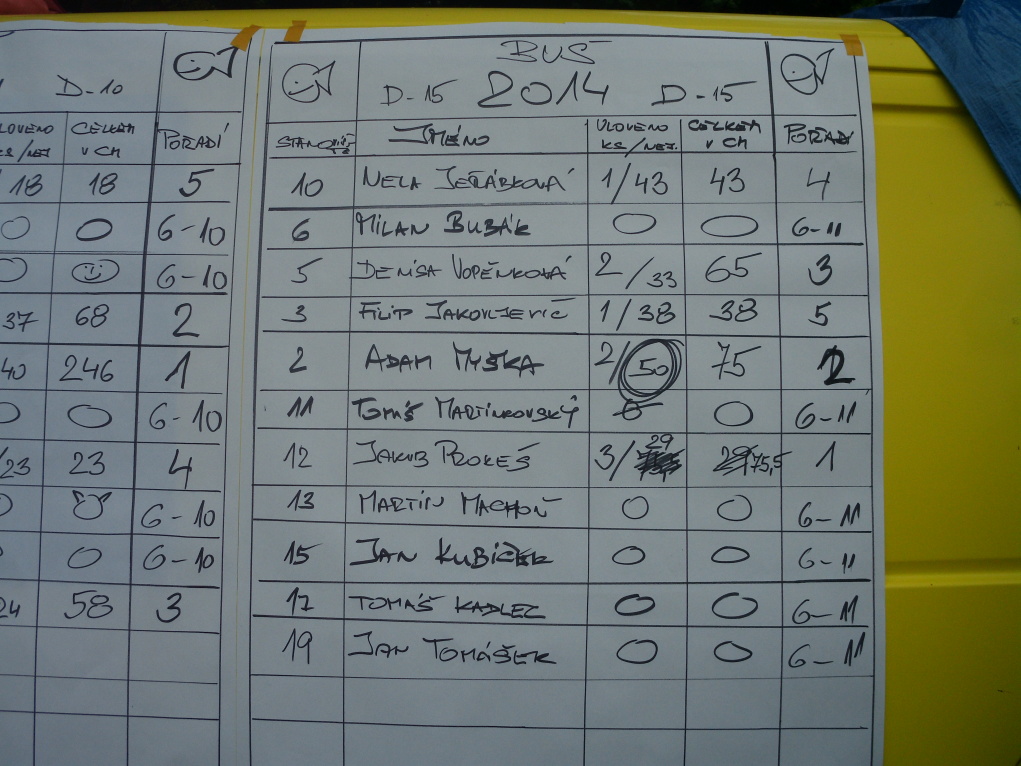 D-10
ULOVENO CELKEM POŘADÍ
KS/NEJ. V CM
18 18 5
0 0 6-10
0 6-10
37 68 2
40 246 1
0 0 6-10
/23 23 4
6-10
0 6-10
24 58 3
BUŠ
D-15 2014 D-15
STANOVIŠTĚ JMÉNO ULOVENO CELKEM POŘADÍ
KS/NEJ. V CM
10 NELA JEŘÁBKOVÁ 1/43 43 4
6 MILAN BUBÁK 0 0 6-11
5 DENISA VOPĚNKOVÁ 2/33 65 3
3 FILIP JAKOVLJEVIČ 1/38 38 5
2 ADAM MYŠKA 2/50 75 2
11 TOMÁŠ MARTINKOVSKÝ 0 0 6-11
12 JAKUB PROKEŠ 3/29 75,5 1
13 MARTIN MACHOŇ 0 0 6-11
15 JAN KUBÍČEK 0 0 6-11
17 TOMÁŠ KADLEC 0 0 6-11
19 JAN TOMÁŠEK 0 0 6-11